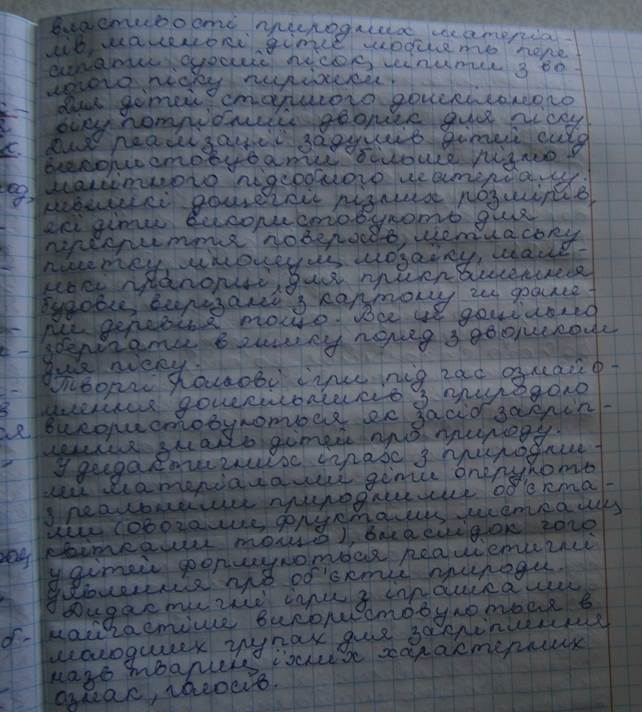 властивості природних матеріа-
лів, маленькі діти люблять пере-
сипати сухий пісок, ліпити з во-
логого піску пиріжки.
Для дітей старшого дошкільного
віку потрібний дворик для піску.
Для реалізації задумів дітей слід
використовувати більше різно-
манітного підсобного матеріалу:
невеликі дощечки різних розмірів,
які діти використовують для
перекриття поверхів, метлаську
плитку, лінолеум, мозаїку, мале-
нькі прапорці, для прикрашення
будови, вирізані з картону чи фане-
ри деревця тощо. Все це доцільно
зберігати в ящику поряд з двориком
для піску.
Творчі рольові ігри під час ознайо-
млення дошкільників з природою
використовуються як засіб закріп-
лення знань дітей про природу.
У дидактичних іграх з природни-
ми матеріалами діти оперують
з реальними природними об'єкта-
ми (овочами, фруктами, листками,
квітками тощо), внаслідок чого
у дітей формуються реалістичні
уявлення про об'єкти природи.
Дидактичні ігри з іграшками
найчастіше використовуються в
молодших групах для закріплення
назв тварин, їхніх характерних
ознак, голосів.